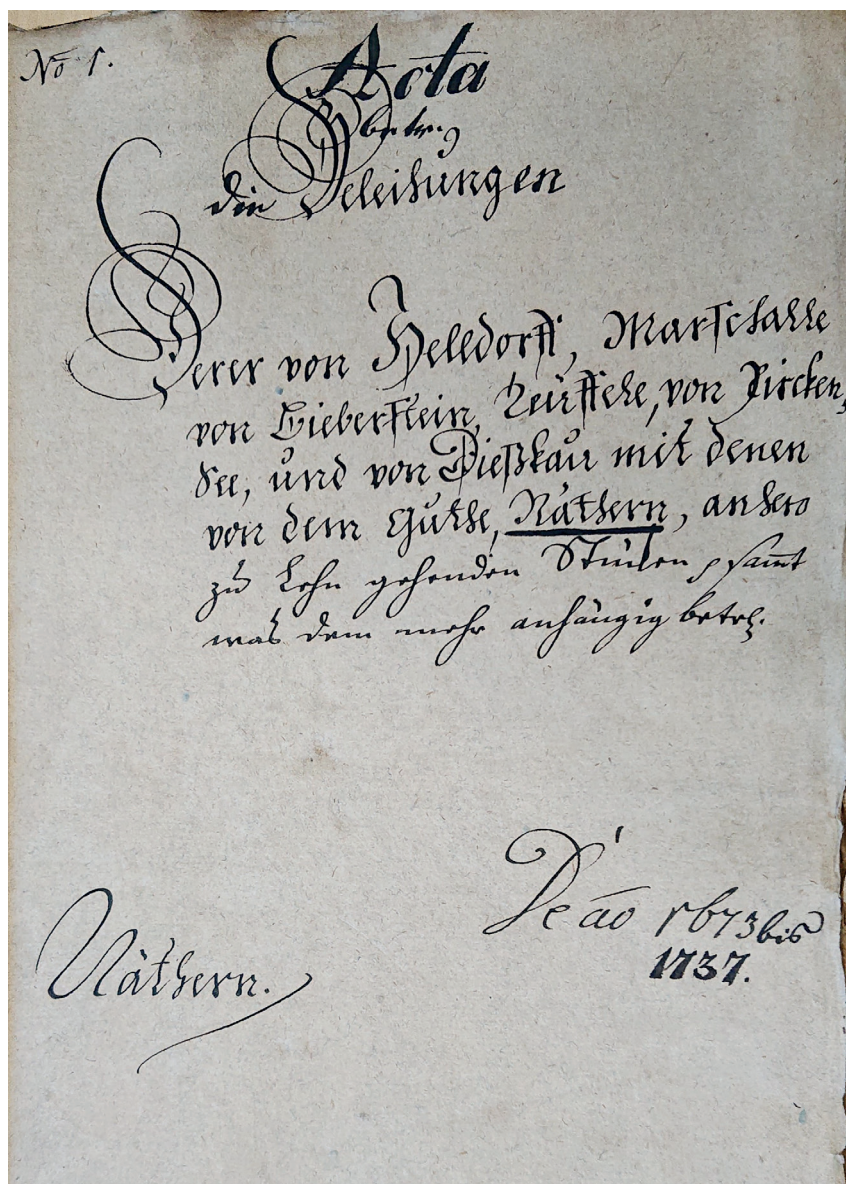 No 1.
Acta
betr.
die Beleihungen
Derer von Helldorff, Marschalle
von Bieberstein, Teüffele, von Bircken,
See, und von Dießkau mit denen
von dem Guthe, Näthern, anhero
zu Lehn gehenden Stücken samt
was dem mehr anhängig betr.
De ao 1673 bis
1737.
Näthern.